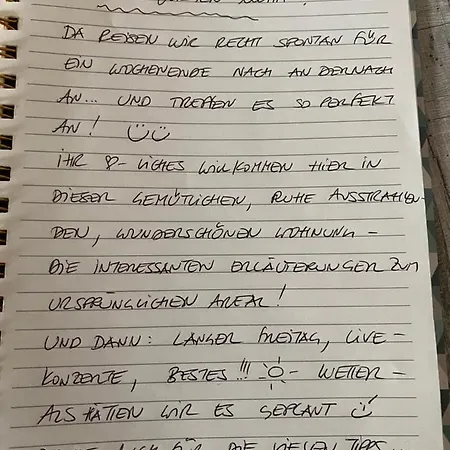 DA REISEN WIR RECHT SPONTAN FÜR
EIN WOCHENENDE NACH ANDERNACH
AN... UND TREFFEN ES SO PERFEKT
AN!
IHR ♡-LICHES WILLKOMMEN HIER IN
DIESER GEMÜTLICHEN, RUHE AUSSTRAHLEN-
DEN, WUNDERSCHÖNEN WOHNUNG –
DIE INTERESSANTEN ERLÄUTERUNGEN ZUM
URSPRÜNGLICHEN AREAL!
UND DANN: LANGER FREITAG, LIVE-
KONZERTE, BESTES!!! ☼- WETTER –
ALS HÄTTEN WIR ES GEPLANT
AUCH FÜR DIE VIELEN TIPPS...